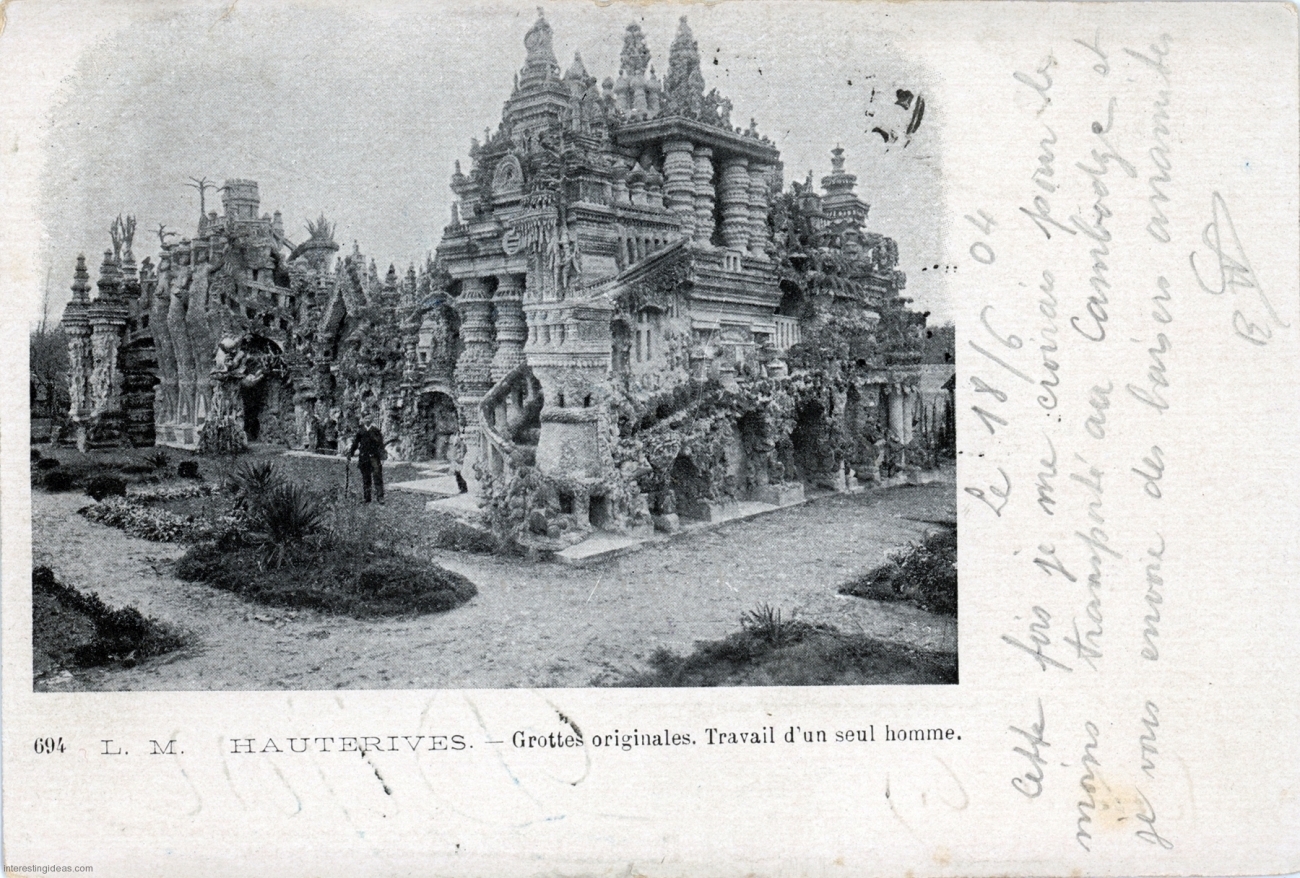 694 L. M. HAUTERIVES. — Grottes originales. Travail d'un seul homme.
Le 18/6 04
Cette fois je me croirais pour les
moins transporté au Cambodge et
je vous envoie des baisers
interestingideas.com